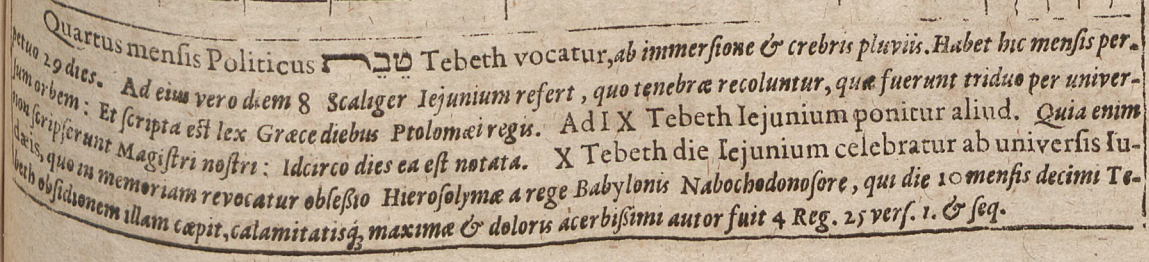 Quartus mensis Politicus טֵבֵת Tebeth vocatur, ab immersione & crebris pluviis. Habet hic mensis per-
petuo 29 dies. Ad eius vero diem 8 Scaliger Iejunium refert, quo tenebræ recoluntur, quæ fuerunt triduo per univer-
sum orbem: Et scripta est lex Græce diebus Ptolomæi regis. Ad IX Tebeth Iejunium ponitur aliud. Quia enim
non scripserunt Magistri nostri: Idcirco dies ea est notata. X Tebeth die Iejunium celebratur ab universis Iu-
dæis, quo in memoriam revocatur obsessio Hierosolymæ a rege Babylonis Nabochodonosore, qui die 10 mensis decimi Te-
beth obsidionem illam cæpit, calamitatisq́; maximæ & doloris acerbissimi autor fuit 4 Reg. 25 vers. 1. & seq.